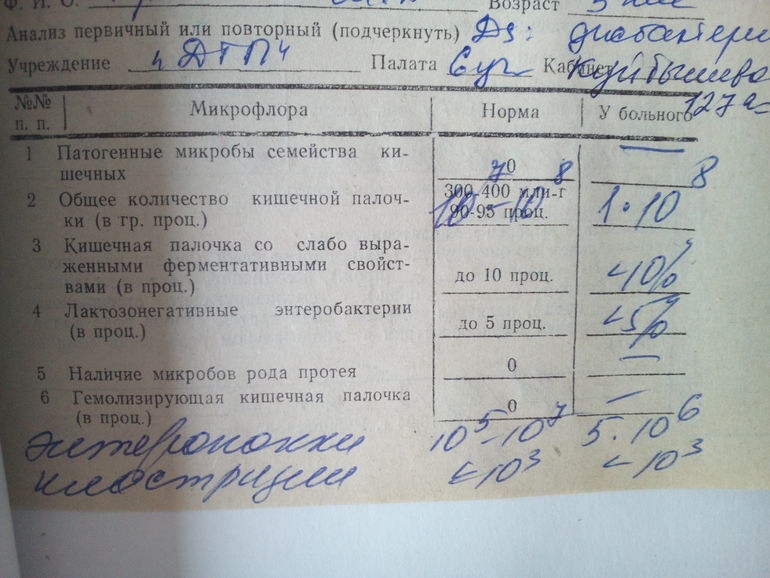 Ф. И. О. Возраст 5 лет
Анализ первичный или повторный (подчеркнуть) Дз: дисбактери
Учреждение ДТП4 Палата Кабинет Куйбышева
127а
№№ п. п. Микрофлора Норма У больного
1 Патогенные микробы семейства ки-
шечных 0 —
2 Общее количество кишечной палоч- 300-400 млн-г
ки (в гр. проц.) 90-95 проц. 10^7-10^8 1·10^8
3 Кишечная палочка со слабо выра-
женными ферментативными свойст-
вами (в проц.) до 10 проц. <10%
4 Лактозонегативные энтеробактерии
(в проц.) до 5 проц. <5%
5 Наличие микробов рода протея 0 —
6 Гемолизирующая кишечная палочка
(в проц.) 0 —
энтерококки 10^5-10^7 5·10^6
клостридии <10^3 <10^3